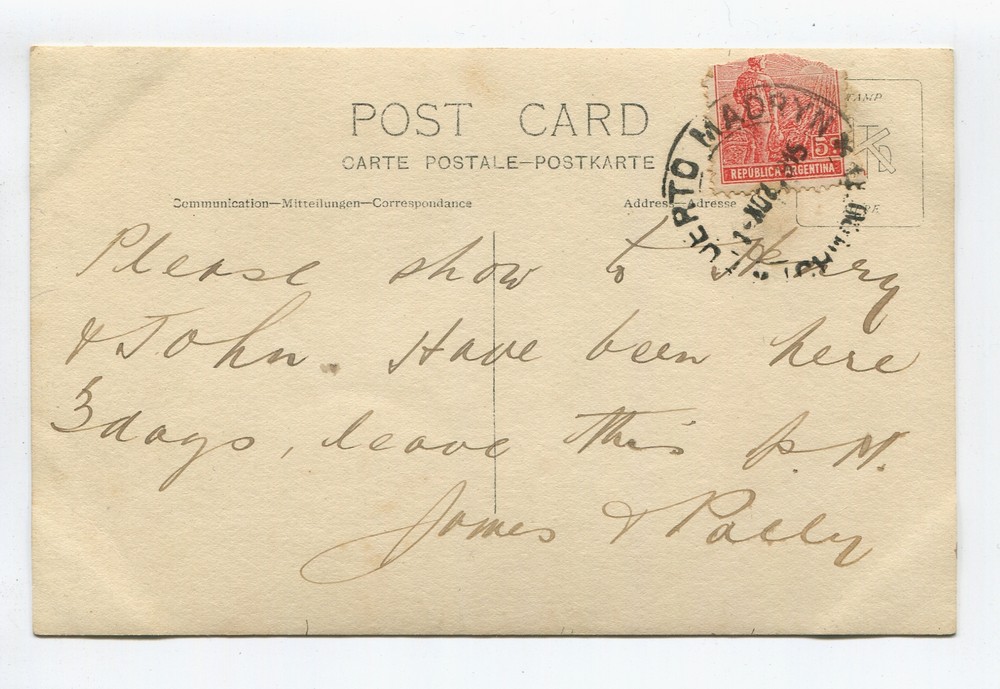 POST CARD
CARTE POSTALE—POSTKARTE
Communication—Mitteilungen—Correspondance
Address—Adresse
5
REPÚBLICA ARGENTINA
PUERTO MADRYN
JUN
Please show to Henry
& John. Have been here
3 days, leave this P.M.
James &